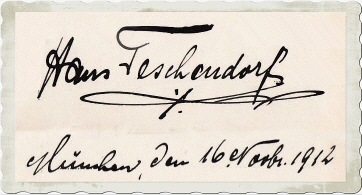 Hans Teschendorf
München, den 16. Novbr. 1912